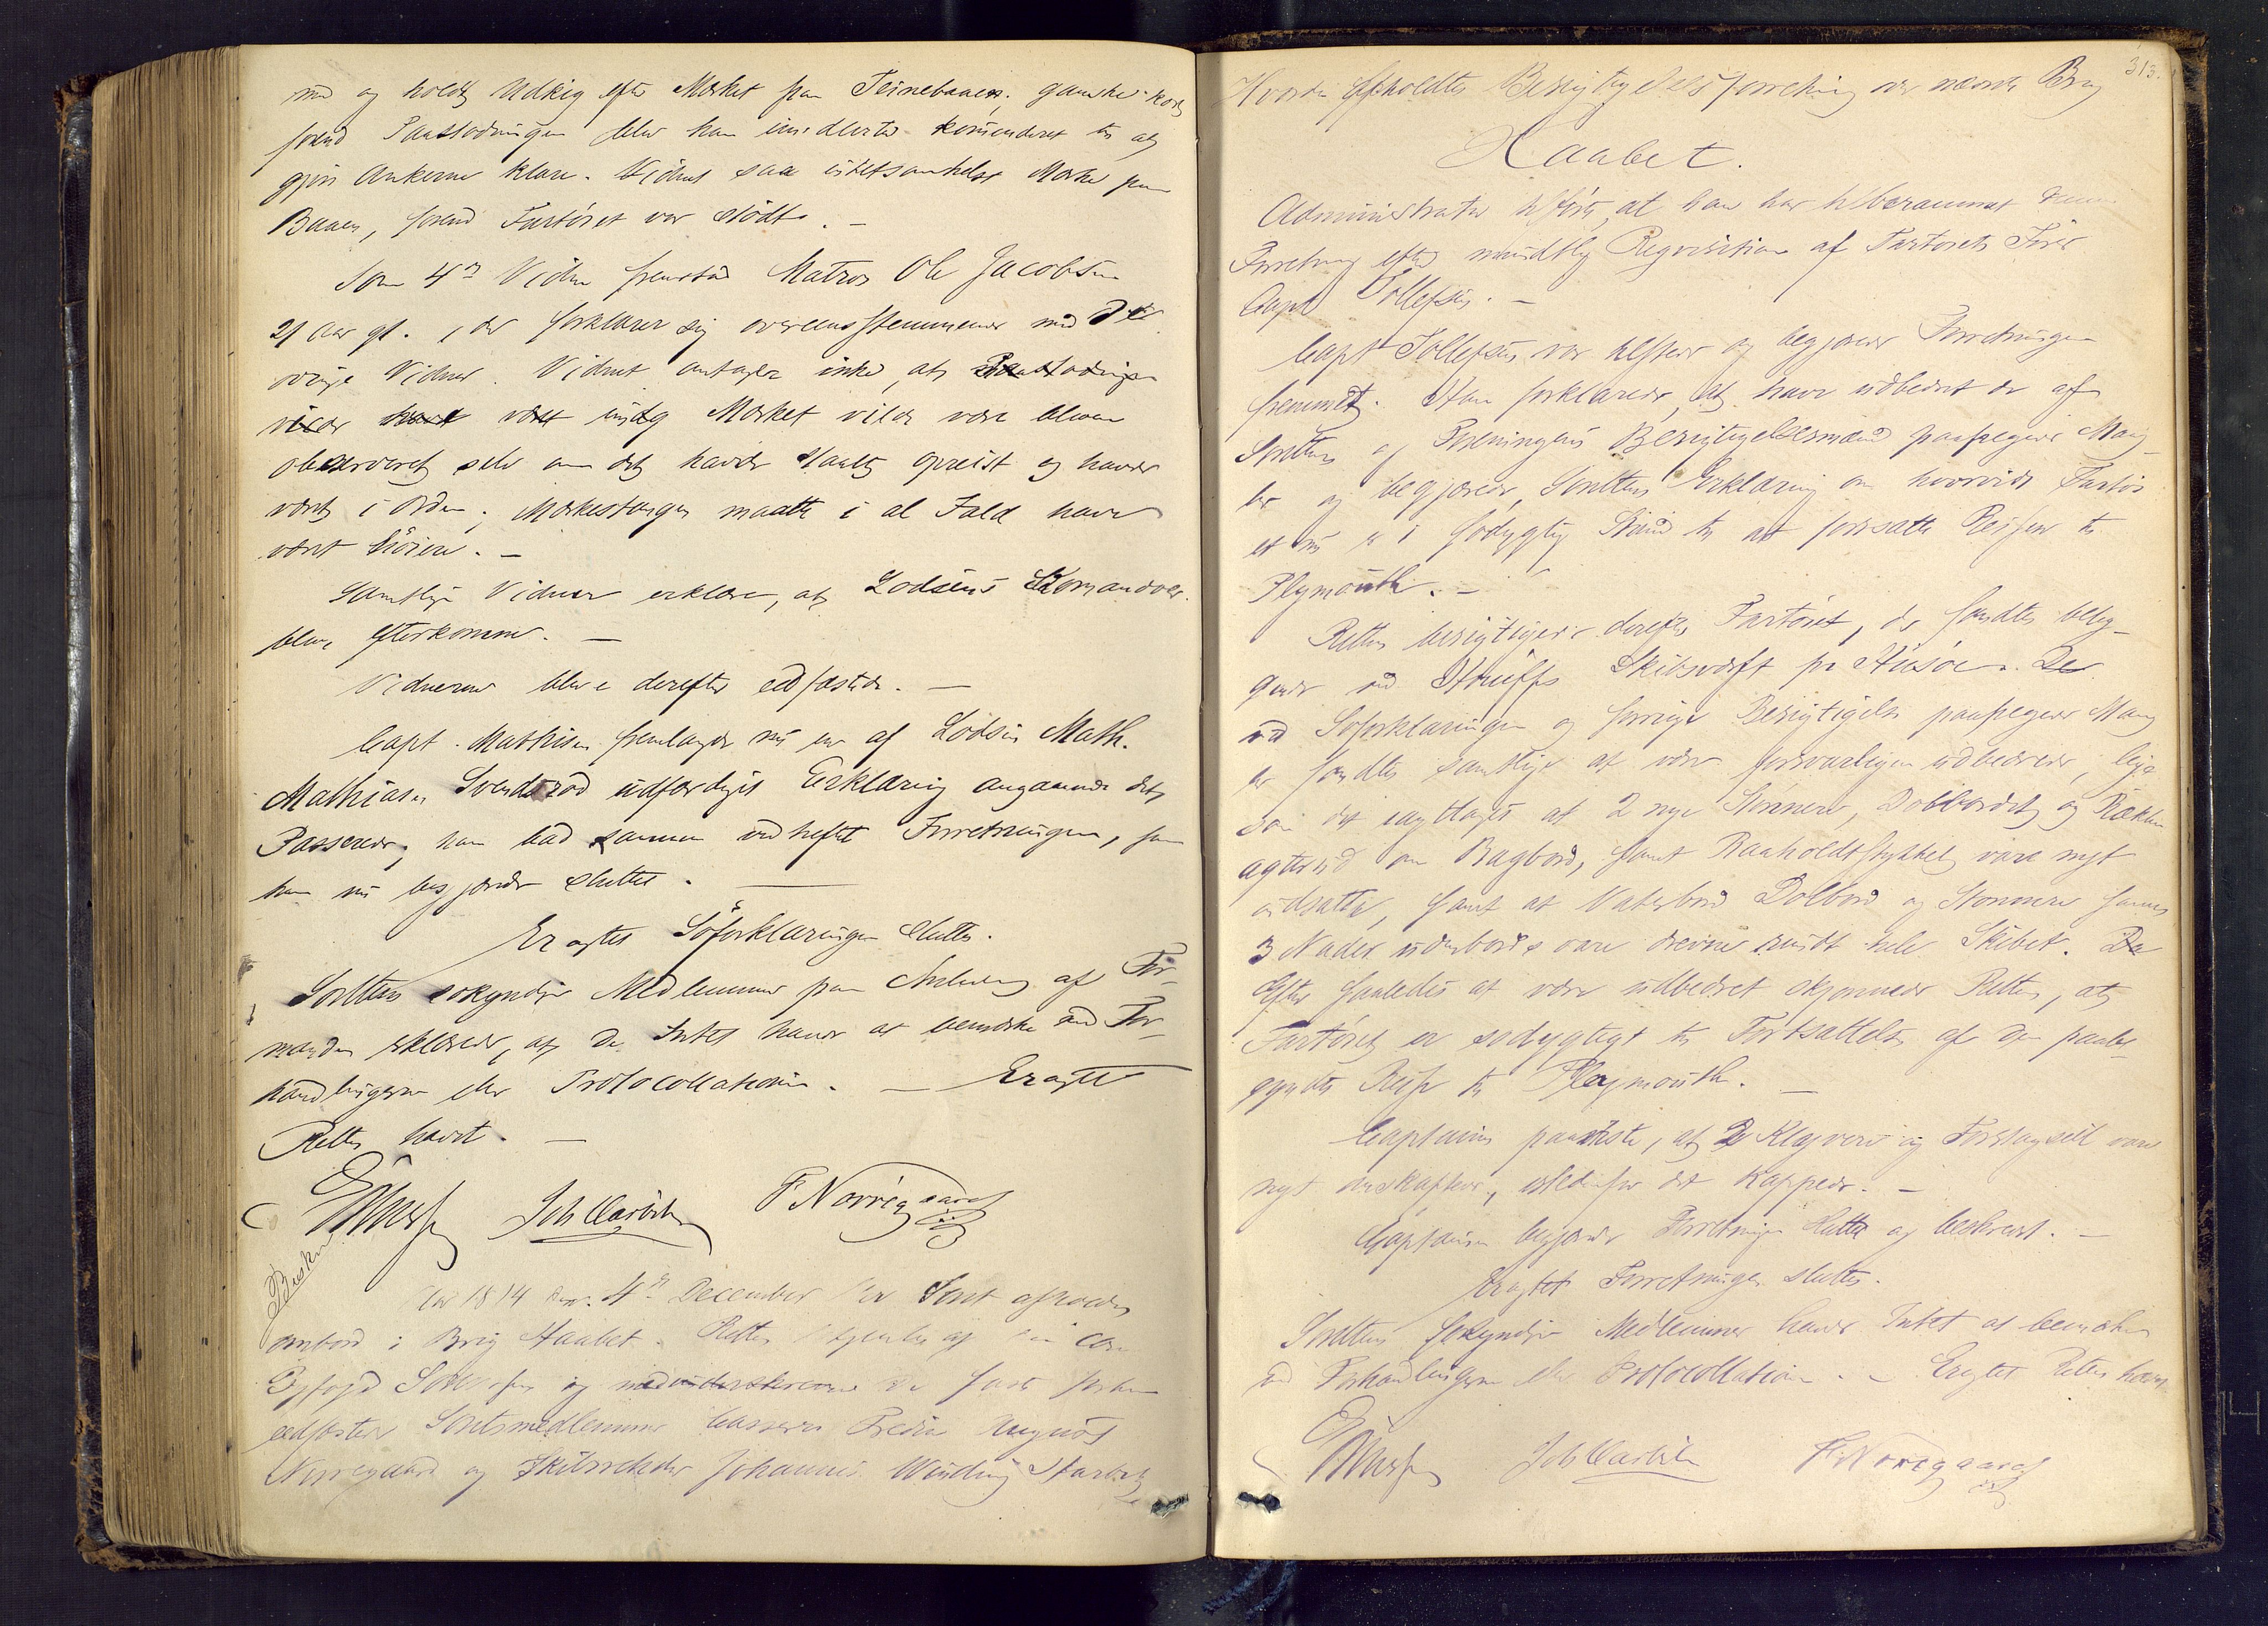 med og holdt Udkig efter Mærket paa Teinebaaen; ganske kort
förend Paastødningen blev han imidlertid komanderet til at
gjöre Ankerne klare. Vidnet saa intetsomhelst Mærke paa
Baaen, forend Fartöiet var stödt. –
Som 4de Vidne fremstod Matros Ole Jacobsen
21 Aar gl., der forklarer sig overeensstemmende med de
övrige Vidner. Vidnet antager ikke, at
Mærket vilde være bleven
observeret selv om det havde staaet opreist og havde
været i Orden; Mærkestangen maatte i al Fald have
været höiere. –
Samtlige Vidner erklære, at Lodsens Komandoer
blev efterkommet. –
Vidnerne bleve derefter edfæstede. –
Capt. Mathisen fremlagde nu en af Lodsen Math.
Mathiasen Svendsrød udfærdiget Erklæring angaaende det
Passerede, han bad samme vedheftet Forretningen, som
han nu begjærede sluttet. –
Eragtet Söforklaringen sluttes.
Sörettens sokyndige Medlemmer paa Anledning af For-
manden erklærede, at de Intet havde at bemærke ved For-
handlingerne eller Protocollationen. – Eragtet
Retten hævet. –
Joh Harbitz F. Norregaard
Beskr
Aar 1874 den 4de December blev Söret afholdt
ombord i Brig Haabet. Retten betjentes af den const.
Byfogd og de faste forhen
edfæstede Söretsmedlemmer Casserer Fredrik August
Norregaard og Skibsreder Johannes Winding Harbitz
313.
Hvorda afholdtes Besigtigelsesforretning over norsk Brig
Haabet.
Administrator tilförte, at han har berammet denne
Forretning efter mundtlig Reqvisition af Fartöiets Förer
Capt Tollefsen. –
Capt Tollefsen var tilstede og begjærede Forretningen
fremmet. Han forklarede, at have udbedret de af
Søretten og Foreningens Besigtigelsesmænd paapegede Mang-
ler og begjærede Sørettens Erklæring om hvorvidt Fartöi-
et nu er i södygtig Stand til at fortsætte Reisen til
Plymouth. –
Retten besigtigede derefter Fartöiet, der fandtes belig-
gende ved Skibsværft paa Husöen. De
ved Söforklaringen og forrige Besigtigelse paapegede Mang
ler fandtes samtlige at være forsvarligen udbedrede, lige
som det iagttages at 2 nye Stönnere, Dobbordet og Rækken
agterud om Bagbord, samt Raaholdtstykket vare nyt
indsatte, samt at Vaterbord Dolbord og Stonnere samt
3 Nader udenbords vare drevne rundt hele Skibet. Da
Efter saaledes at være udbedret skjønnede Retten, at
Fartöiet er sødygtigt til Fortsættelse af den paabe-
gyndte Reise til Plymouth. –
Captainen paaviste, at 2 Klyvere og Forstagseil vare
nyt anskaffede, istedenfor det kappede. –
Captainen begjærede Forretningen sluttet og beskrevet. –
Eragtet Forretningen sluttes.
Sørettens sökyndige Medlemmer havde Intet at bemærke
ved Forhandlingerne eller Protocollationen. – Eragtet Retten hævet
Joh Harbitz F. Norregaard